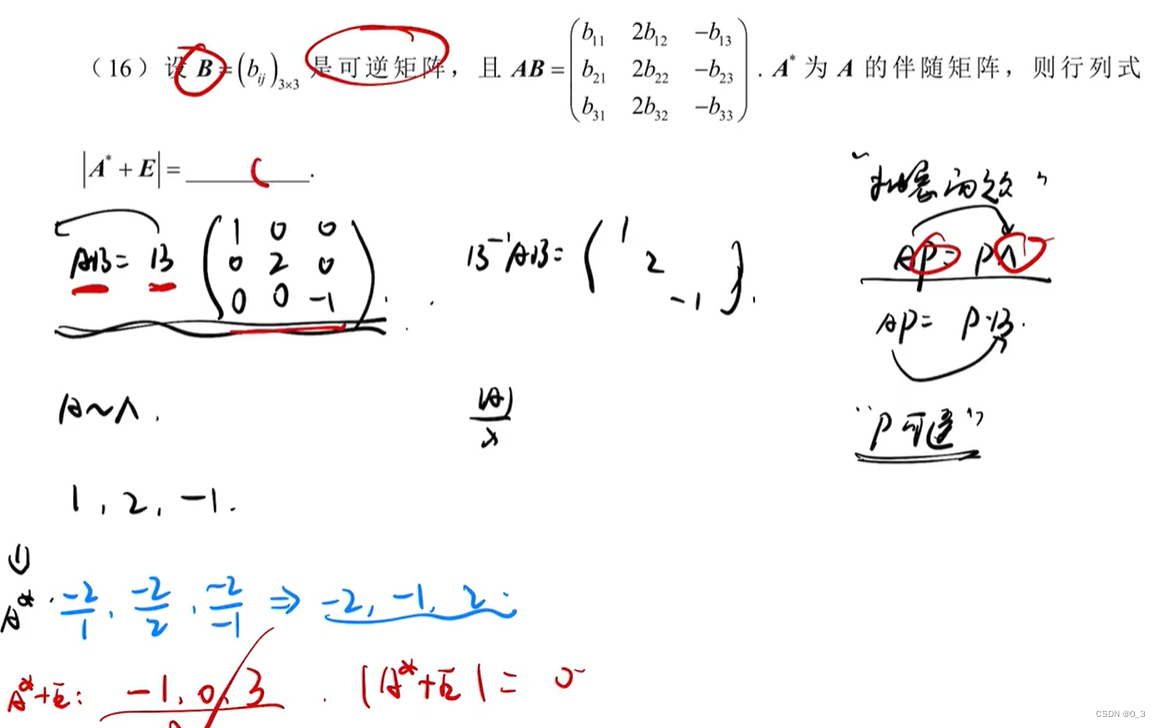 （16）设 B=(b_{ij})_{3×3} 是可逆矩阵，且 AB=\begin{pmatrix} b_{11} & 2b_{12} & -b_{13} \\ b_{21} & 2b_{22} & -b_{23} \\ b_{31} & 2b_{32} & -b_{33} \end{pmatrix}．A^* 为 A 的伴随矩阵，则行列式
|A^*+E|=________.
AB= B \begin{pmatrix} 1 & 0 & 0 \\ 0 & 2 & 0 \\ 0 & 0 & -1 \end{pmatrix}.
B^{-1}AB= \begin{pmatrix} 1 & & \\ & 2 & \\ & & -1 \end{pmatrix}.
AP= PΛ
AP= P·B.
"P可逆"
A~Λ.
|A|/λ
1, 2, -1.
A^*. -2/1, -2/2, -2/-1 ⇒ -2, -1, 2.
A^*+E: -1, 0, 3. |A^*+E|= 0
CSDN @0_3